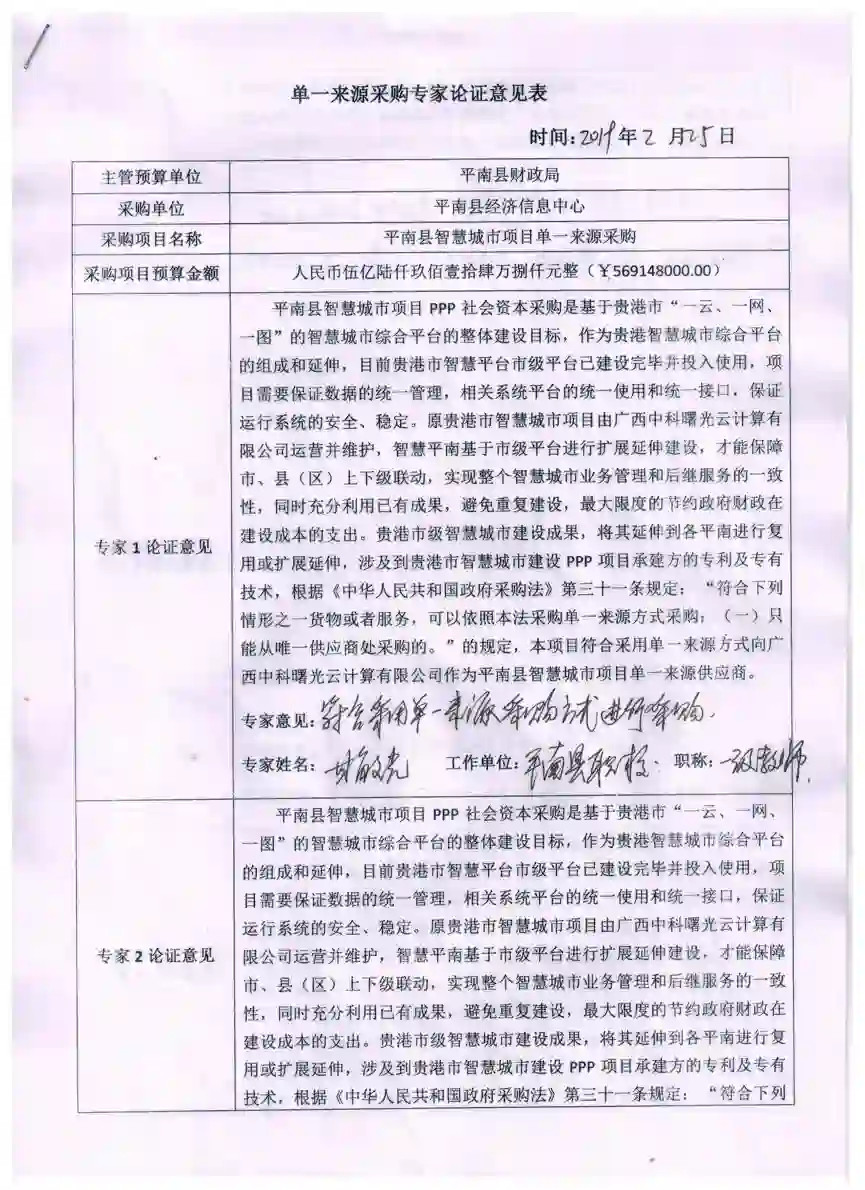 单一来源采购专家论证意见表
时间:2019年2月25日
主管预算单位 平南县财政局
采购单位 平南县经济信息中心
采购项目名称 平南县智慧城市项目单一来源采购
采购项目预算金额 人民币伍亿陆仟玖佰壹拾肆万捌仟元整（￥569148000.00）
平南县智慧城市项目 PPP 社会资本采购是基于贵港市“一云、一网、
一图”的智慧城市综合平台的整体建设目标，作为贵港智慧城市综合平台
的组成和延伸，目前贵港市智慧平台市级平台已建设完毕并投入使用，项
目需要保证数据的统一管理，相关系统平台的统一使用和统一接口，保证
运行系统的安全、稳定。原贵港市智慧城市项目由广西中科曙光云计算有
限公司运营并维护，智慧平南基于市级平台进行扩展延伸建设，才能保障
市、县（区）上下级联动，实现整个智慧城市业务管理和后继服务的一致
性，同时充分利用已有成果，避免重复建设，最大限度的节约政府财政在
建设成本的支出。贵港市级智慧城市建设成果，将其延伸到各平南进行复
专家 1 论证意见
用或扩展延伸，涉及到贵港市智慧城市建设 PPP 项目承建方的专利及专有
技术，根据《中华人民共和国政府采购法》第三十一条规定：“符合下列
情形之一货物或者服务，可以依照本法采购单一来源方式采购；（一）只
能从唯一供应商处采购的。”的规定，本项目符合采用单一来源方式向广
西中科曙光云计算有限公司作为平南县智慧城市项目单一来源供应商。
专家意见:符合采用单一来源采购方式进行采购.
专家姓名: 工作单位:平南县职校. 职称:一级教师.
平南县智慧城市项目 PPP 社会资本采购是基于贵港市“一云、一网、
一图”的智慧城市综合平台的整体建设目标，作为贵港智慧城市综合平台
的组成和延伸，目前贵港市智慧平台市级平台已建设完毕并投入使用，项
目需要保证数据的统一管理，相关系统平台的统一使用和统一接口，保证
运行系统的安全、稳定。原贵港市智慧城市项目由广西中科曙光云计算有
专家 2 论证意见
限公司运营并维护，智慧平南基于市级平台进行扩展延伸建设，才能保障
市、县（区）上下级联动，实现整个智慧城市业务管理和后继服务的一致
性，同时充分利用已有成果，避免重复建设，最大限度的节约政府财政在
建设成本的支出。贵港市级智慧城市建设成果，将其延伸到各平南进行复
用或扩展延伸，涉及到贵港市智慧城市建设 PPP 项目承建方的专利及专有
技术，根据《中华人民共和国政府采购法》第三十一条规定：“符合下列